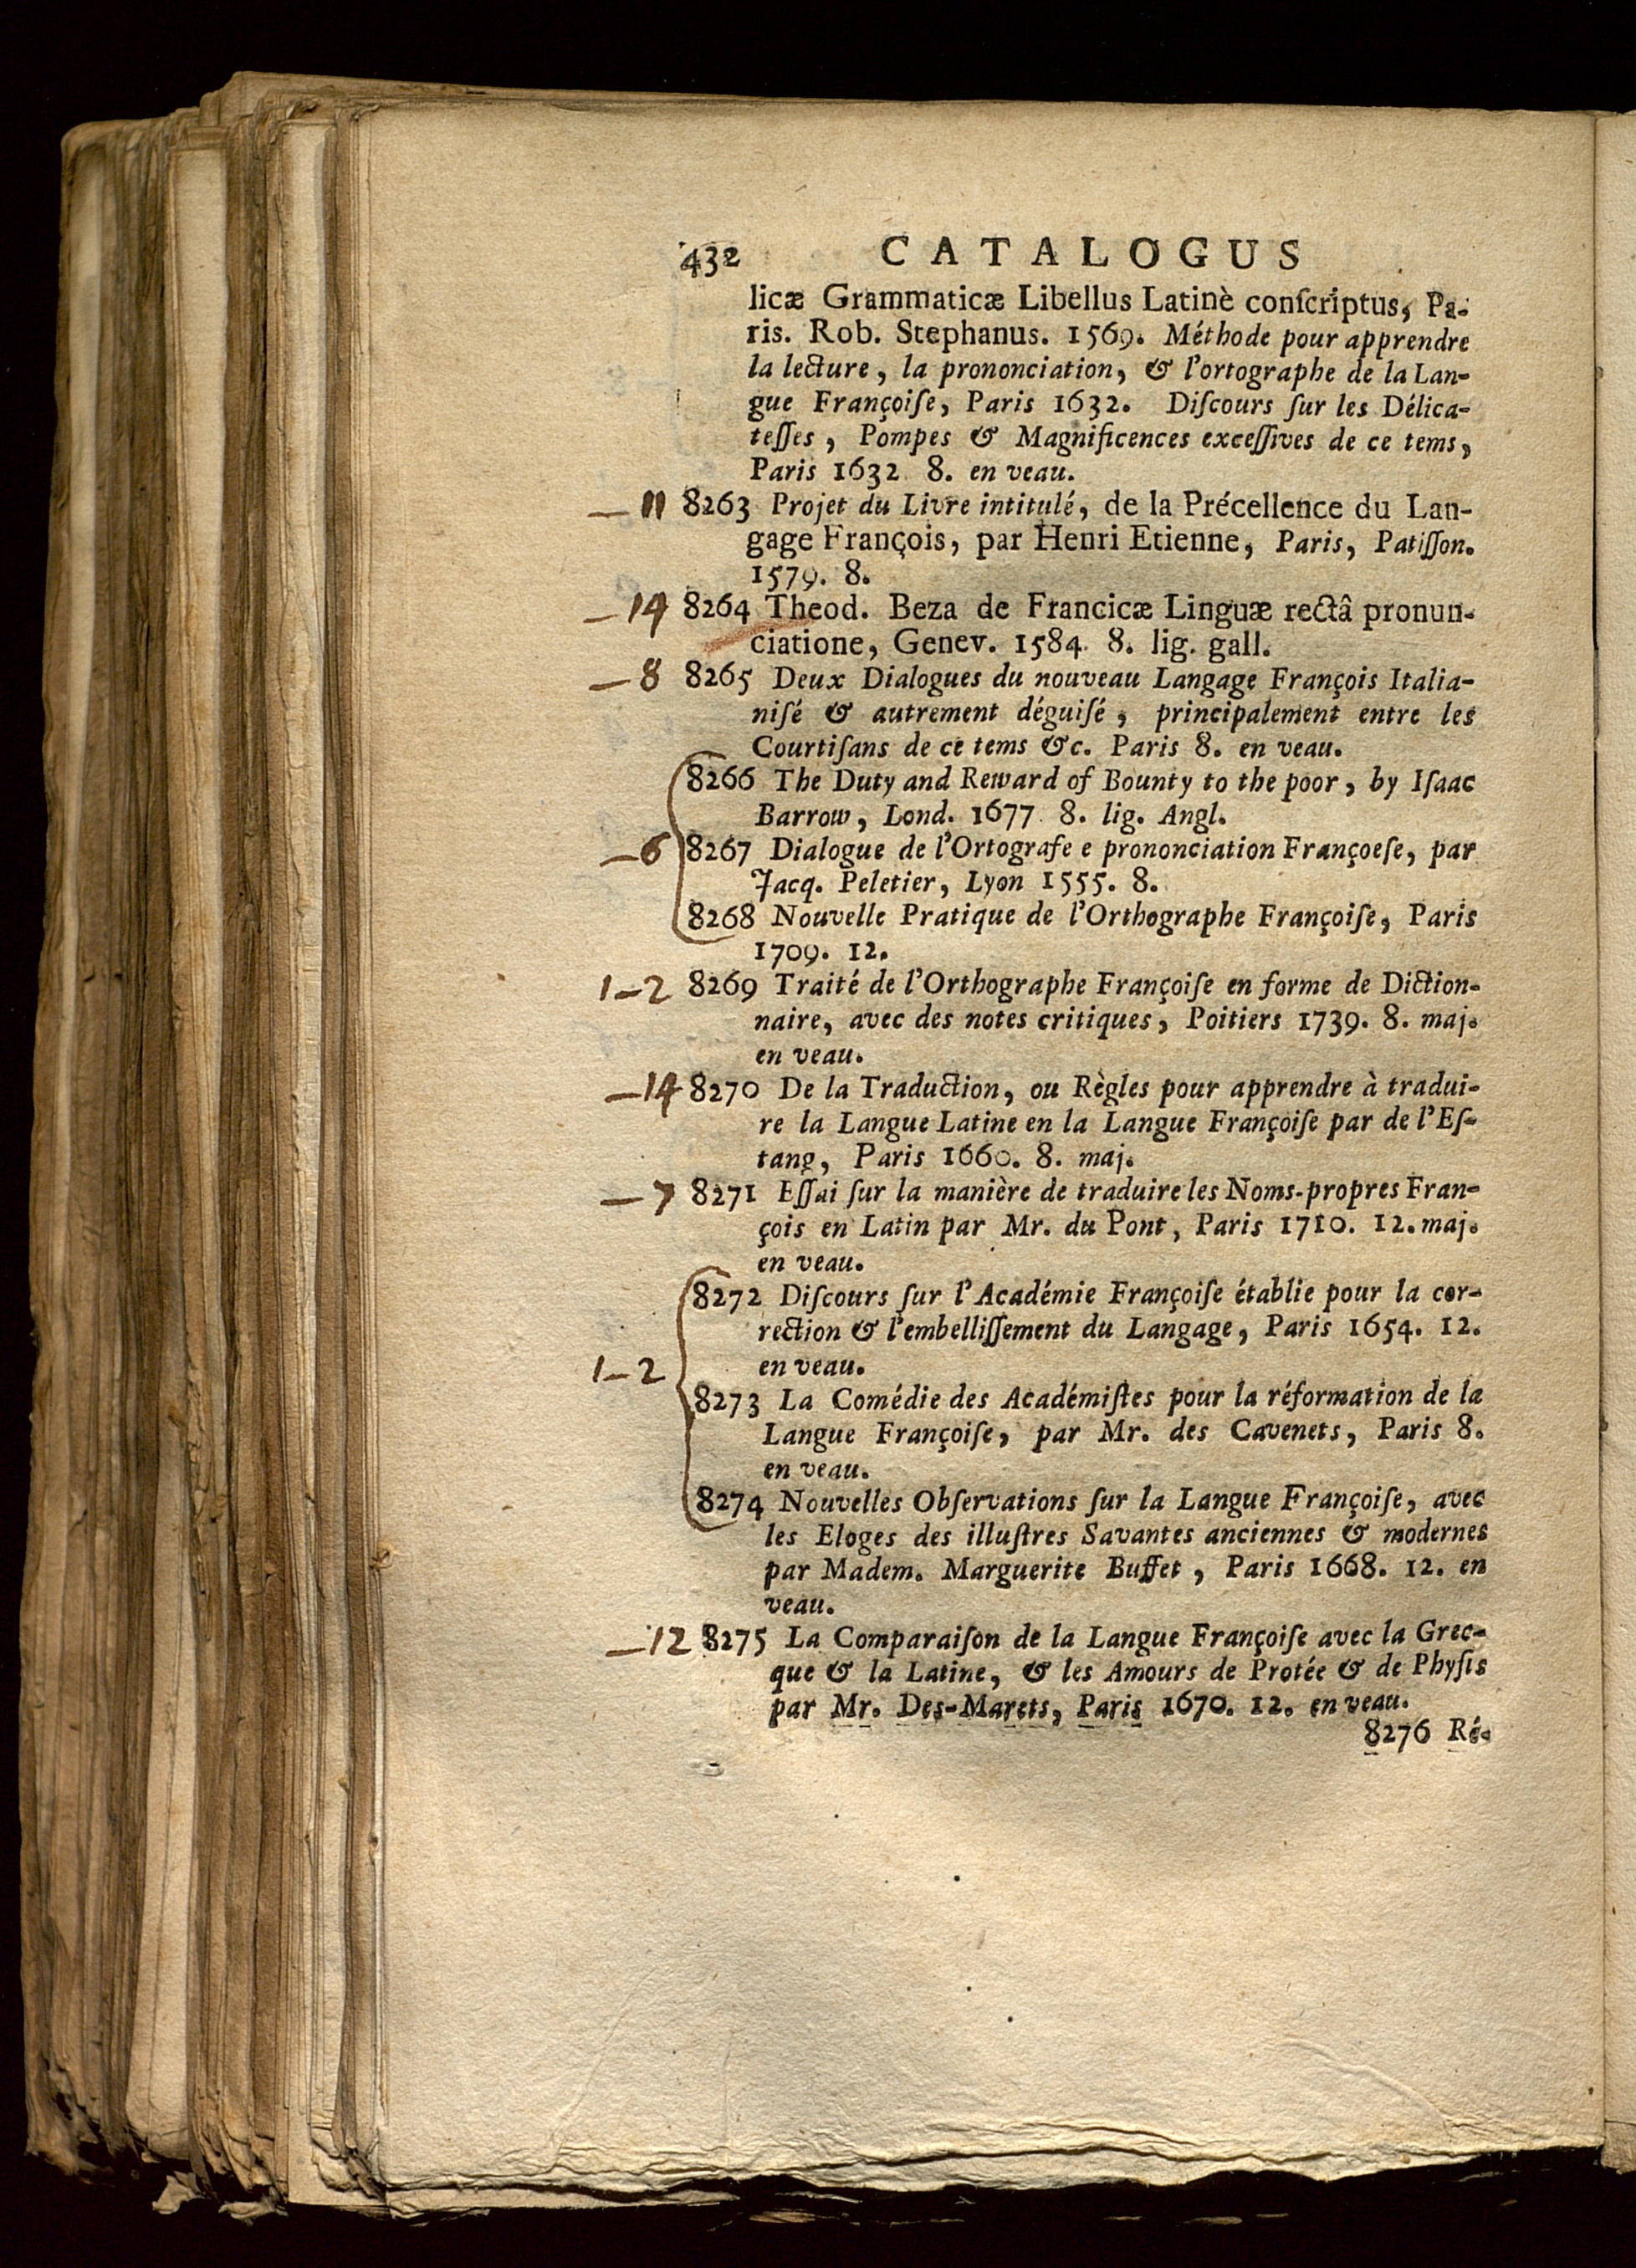 432 CATALOGUS
licæ Grammaticæ Libellus Latinè conſcriptus, Pa-
ris. Rob. Stephanus. 1569. Méthode pour apprendre
la lecture, la prononciation, & l'ortographe de la Lan-
gue Françoiſe, Paris 1632. Diſcours ſur les Délica-
teſſes, Pompes & Magnificences exceſſives de ce tems,
Paris 1632 8. en veau.
— 11 8263 Projet du Livre intitulé, de la Précellence du Lan-
gage François, par Henri Etienne, Paris, Patiſſon.
1579. 8.
— 14 8264 Theod. Beza de Francicæ Linguæ rectâ pronun-
ciatione, Genev. 1584. 8. lig. gall.
— 8 8265 Deux Dialogues du nouveau Langage François Italia-
niſé & autrement déguiſé, principalement entre les
Courtiſans de ce tems &c. Paris 8. en veau.
8266 The Duty and Reward of Bounty to the poor, by Iſaac
Barrow, Lond. 1677. 8. lig. Angl.
— 6 8267 Dialogue de l'Ortografe e prononciation Françoeſe, par
Jacq. Peletier, Lyon 1555. 8.
8268 Nouvelle Pratique de l'Orthographe Françoiſe, Paris
1709. 12.
1 — 2 8269 Traité de l'Orthographe Françoiſe en forme de Diction-
naire, avec des notes critiques, Poitiers 1739. 8. maj.
en veau.
— 14 8270 De la Traduction, ou Règles pour apprendre à tradui-
re la Langue Latine en la Langue Françoiſe par de l'Eſ-
tang, Paris 1660. 8. maj.
— 7 8271 Eſſai ſur la manière de traduire les Noms-propres Fran-
çois en Latin par Mr. du Pont, Paris 1710. 12. maj.
en veau.
8272 Diſcours ſur l'Académie Françoiſe établie pour la cor-
rection & l'embelliſſement du Langage, Paris 1654. 12.
1 — 2 en veau.
8273 La Comédie des Académiſtes pour la réformation de la
Langue Françoiſe, par Mr. des Cavenets, Paris 8.
en veau.
8274 Nouvelles Obſervations ſur la Langue Françoiſe, avec
les Eloges des illuſtres Savantes anciennes & modernes
par Madem. Marguerite Buffet, Paris 1668. 12. en
veau.
— 12 8275 La Comparaiſon de la Langue Françoiſe avec la Grec-
que & la Latine, & les Amours de Protée & de Phyſis
par Mr. Des-Marets, Paris 1670. 12. en veau.
8276 Ré-